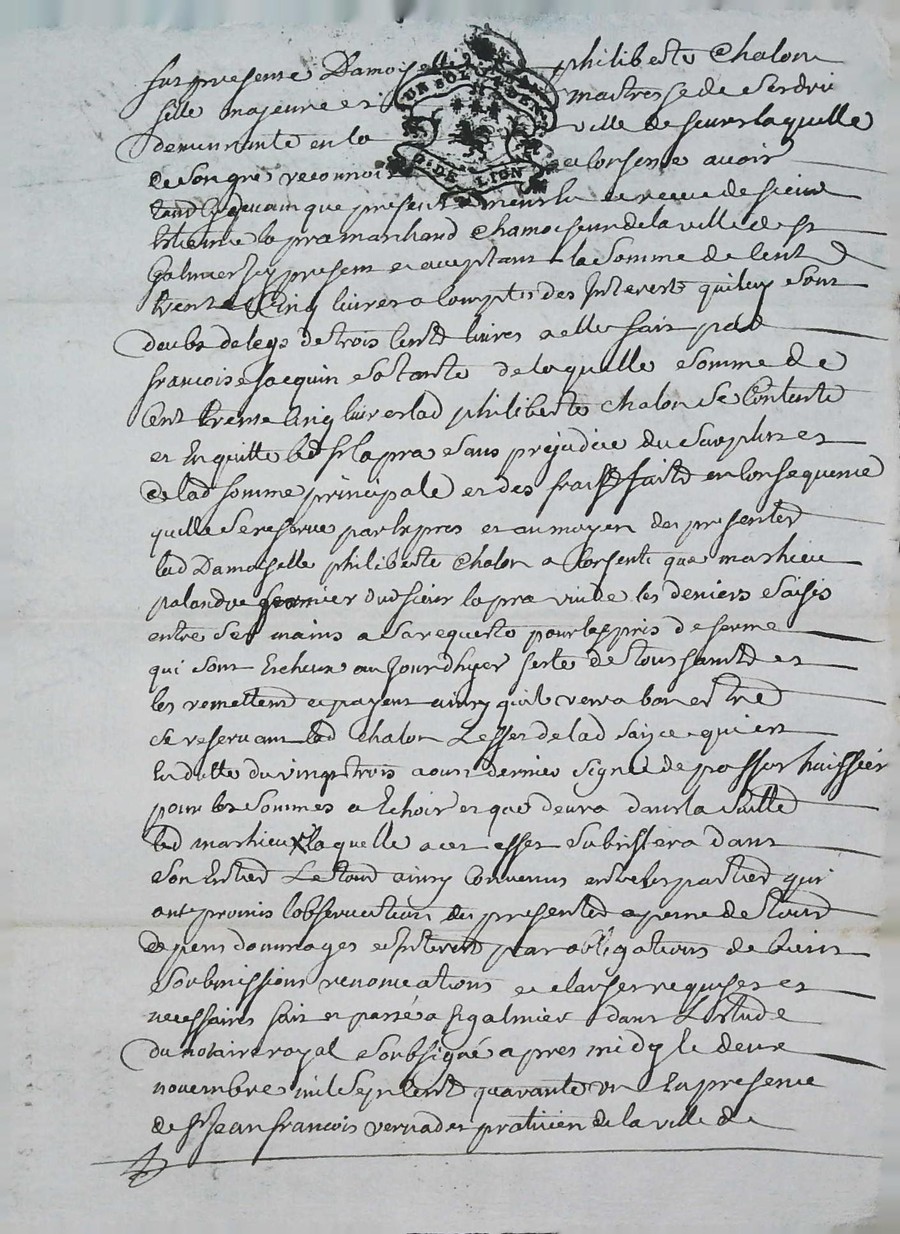 fut presente Damoiselle philiberte Chalon
fille majeure et maitresse de ses droi
demeurante en la ville de feurs laquelle
de son gré reconnoit et confesse avoir
tant cy devant que presentement eu et receu de sieur
Estienne lapra marchand chamoiseur de la ville de st
Galmier icy present et acceptant la somme de cent
trente Cinq livres a compte des Interests qui luy sont
deubs de legs de trois cents livres a elle fait par
francoise Jacquin sa tante de laquelle somme de
Cent trente cinq livres lad philiberte chalon se Contente
et En quitte led sr lapra sans prejudice du surplus et
de lad somme principale et des frais faits en consequence
quelle se reserve par expres et au moyen des presentes
lad Damoiselle philiberte Chalon a Consenti que mathieu
palandre fermier dud sieur lapra vuide les deniers saisis
entre ses mains a sa requeste pour les prix de ferme
qui sont Echeux au Jourdhyer feste de toussaints et
les remettre et payer ainsy quil verra bon estre
se reservant lad chalon Leffet de lad saisie qui est
En datte du vingt trois aoust dernier signée de passor huissier
pour les sommes a Echoir et que devra dans la suitte
led mathieu laquelle a cet effet subsistera dans
son Entier Le tout ainsy Convenus entre les parties qui
ont promis l'observation des presentes a peine de tous
depens dommages et Interests par obligations de biens
soubmissions renonciations et clauses requises et
necessaires fait et passé a st galmier dans L'estude
du notaire royal soubsigné apres midy le deux
novembre mil sept cents quarante un En presence
de sr Jean francois vernades praticien de la ville de